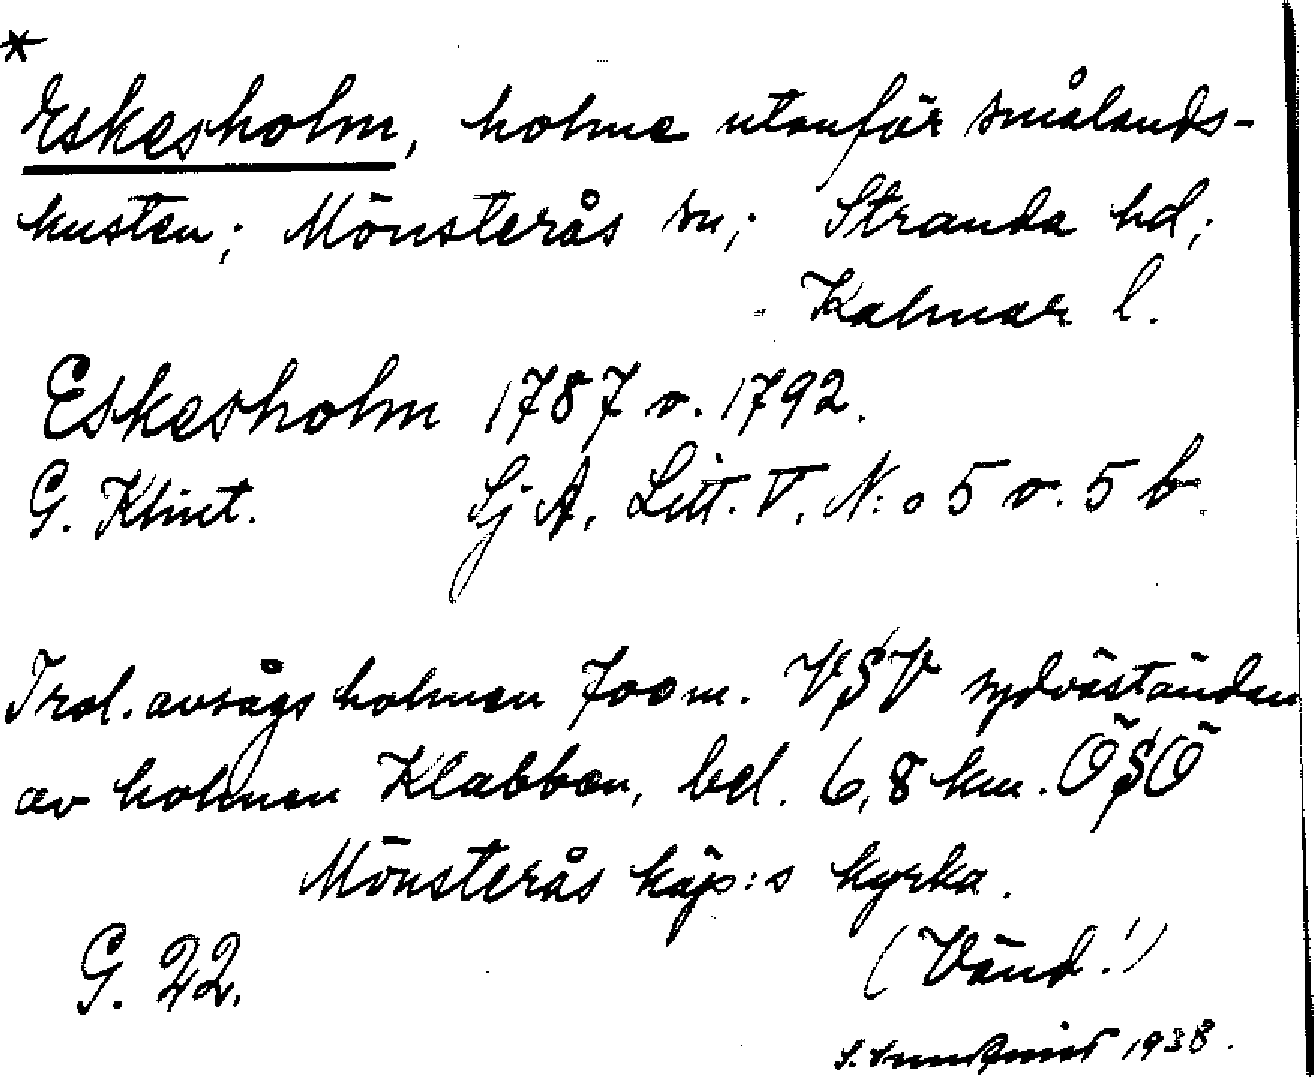 *
Eskesholm, holme utanför smålands-
kusten; Mönsterås sn; Stranda hd;
Kalmar l.
Eskesholm 1787 o. 1792.
G. Klint. SjA, Litt. V, N:o 5 o. 5 b.
Trol. avsågs holmen 700 m. VSV sydväständen
av holmen Klabben, bel. 6,8 km. ÖSÖ
Mönsterås köp:s kyrka.
G. 22. (Vänd!)
S. 1938.